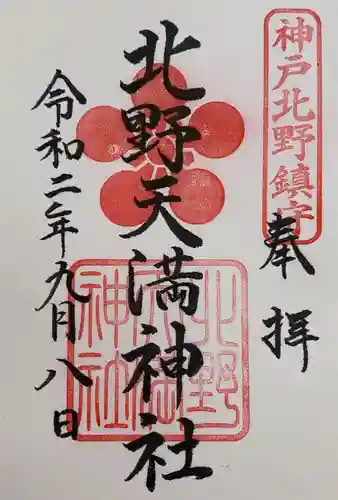 神戸北野鎮守
奉拝
北野天満神社
北野天満神社
令和二年九月八日